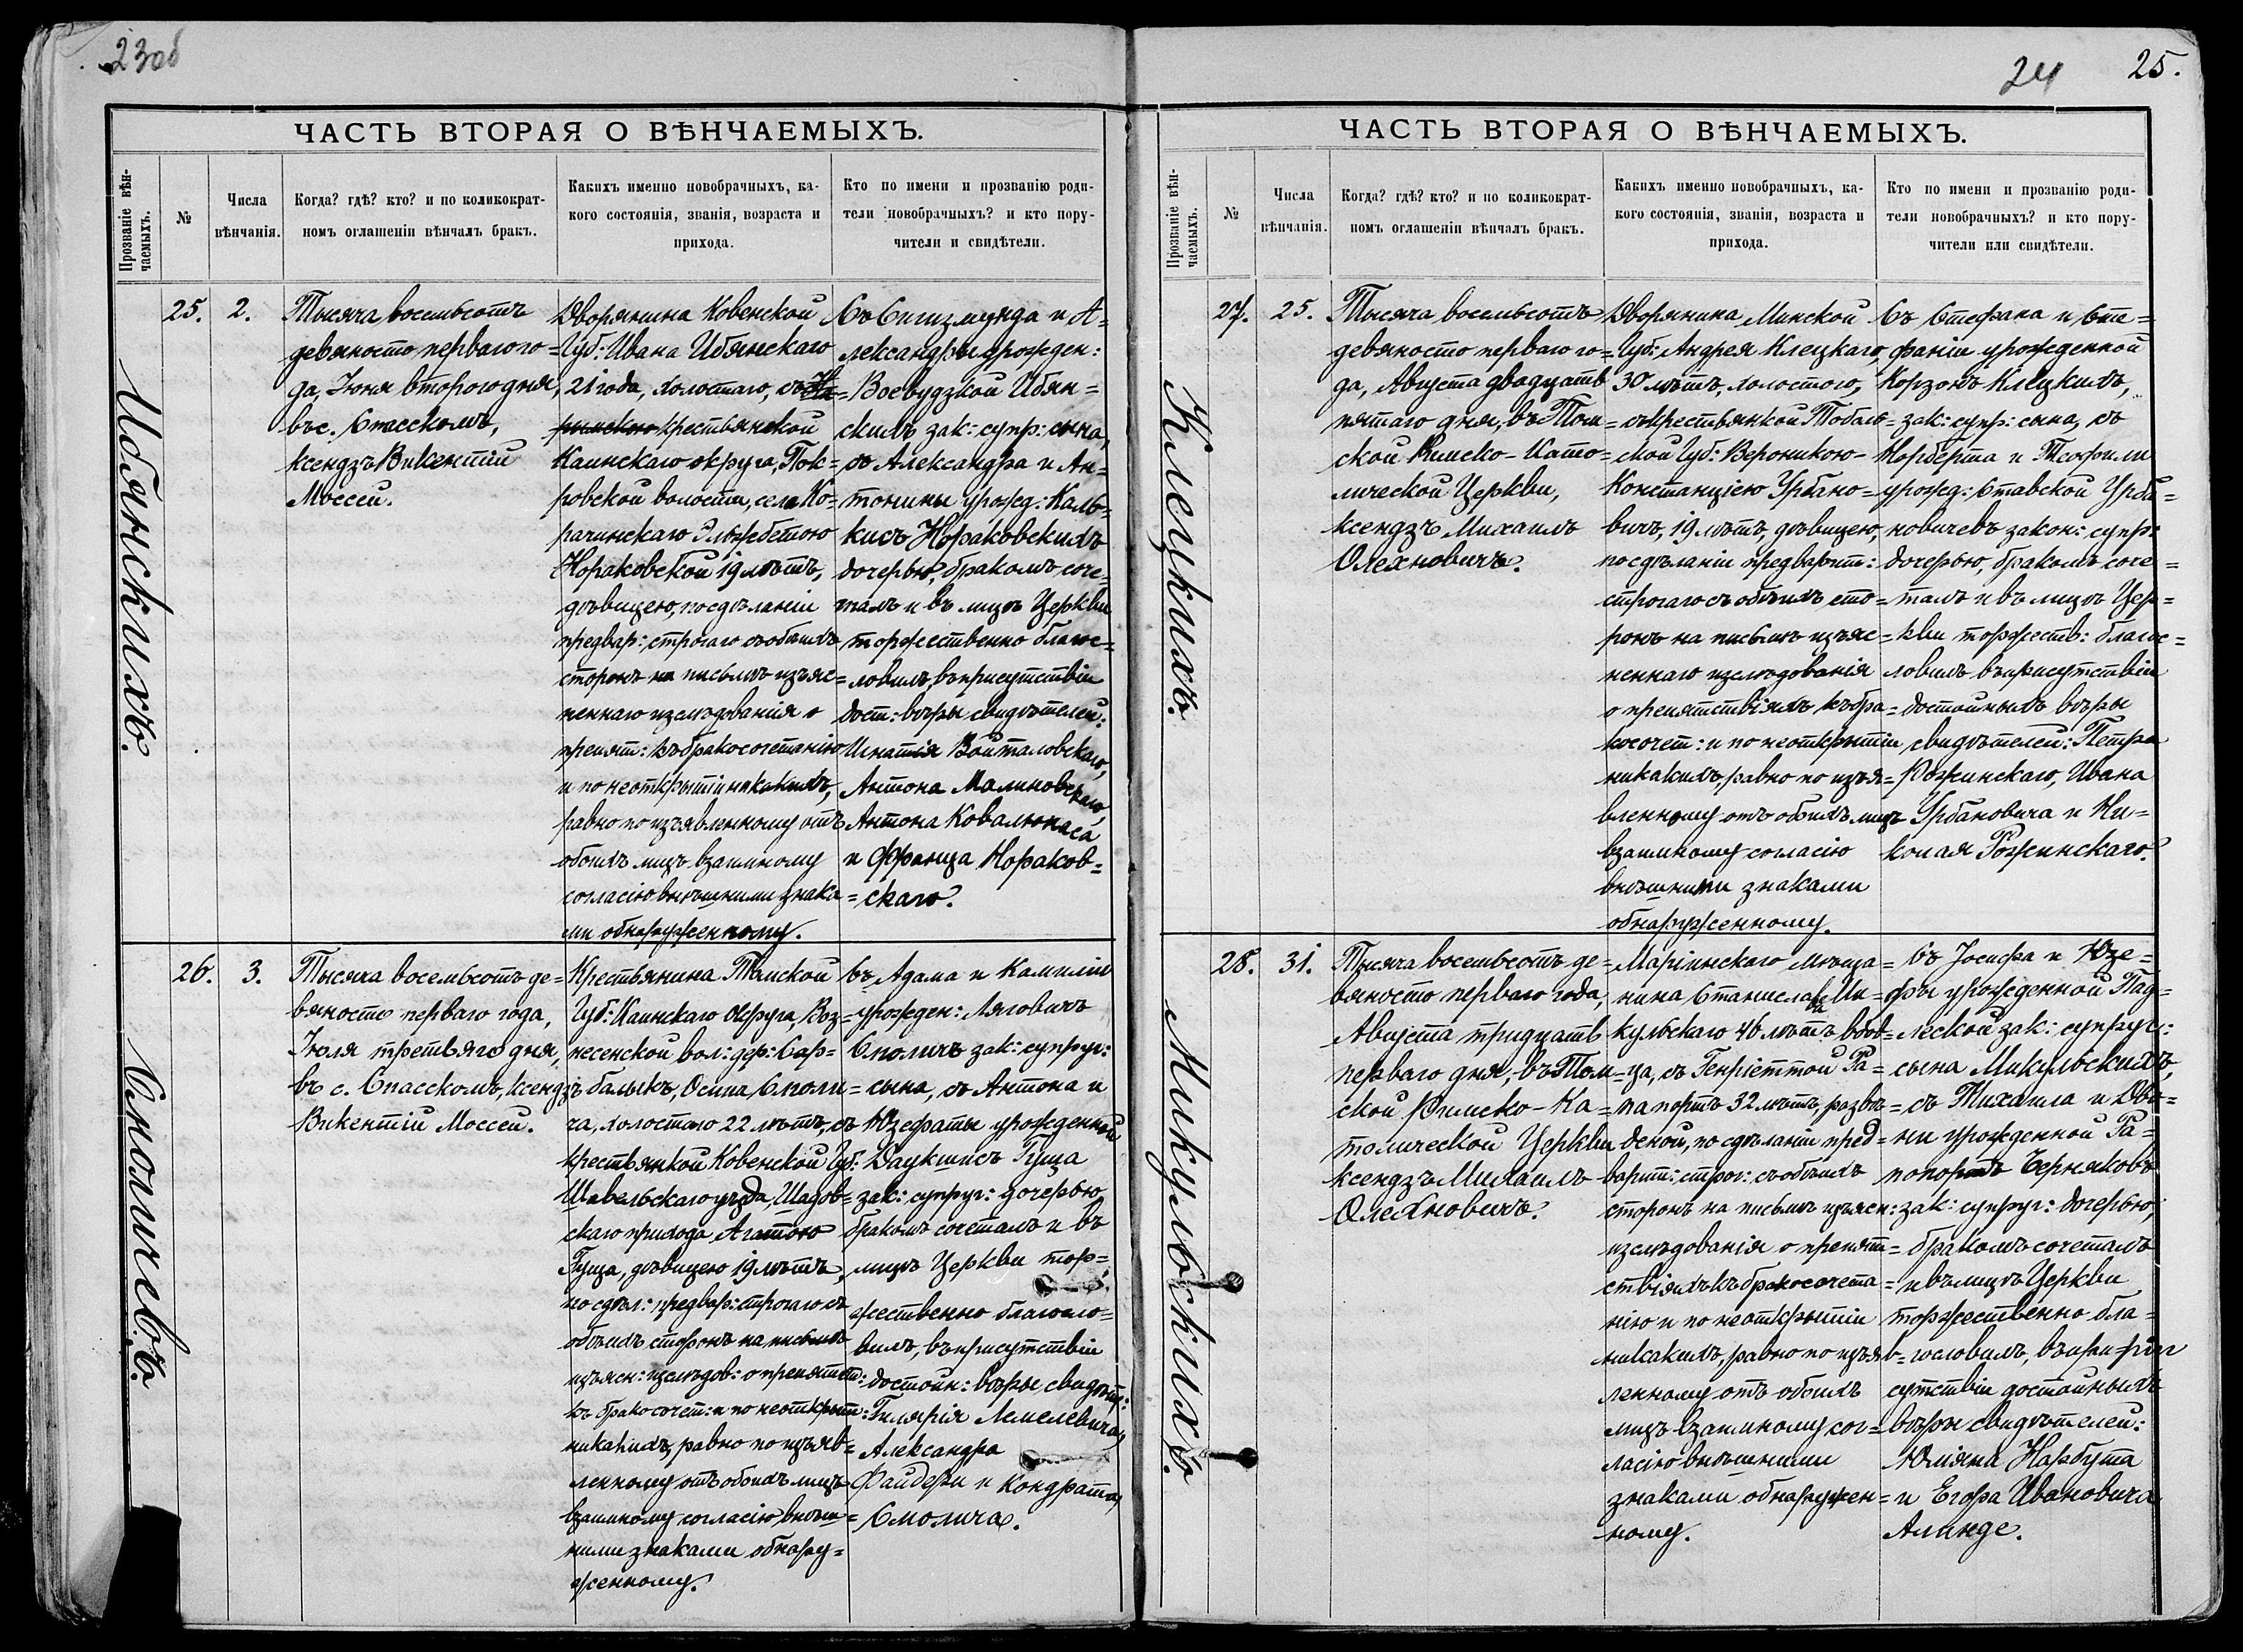 23об
ЧАСТЬ ВТОРАЯ О ВѢНЧАЕМЫХЪ.
Прозваніе вѣн-
чаемыхъ.
№
Числа
вѣнчанія.
Когда? гдѣ? кто? и по коликократ-
номъ оглашеніи вѣнчалъ бракъ.
Какихъ именно новобрачныхъ, ка-
кого состоянія, званія, возраста и
прихода.
Кто по имени и прозванію роди-
тели новобрачныхъ? и кто пору-
чители и свидѣтели.
Ибянскихъ.
25.
2.
Тысяча восемьсотъ
девяносто перваго го=
да, Іюня второго дня,
въ с. Спасскомъ,
ксендзъ Викентій
Моссей.
Дворянина Ковенской
Губ: Ивана Ибянскаго
21 года, холостаго, съ
крестьянской
Каинскаго округа, Пок=
ровской волости, села Ко=
рачинскаго Эльжбетою
Нораковской 19 лѣтъ,
дѣвицею, по сдѣланіи
предвар: строгаго съ обѣихъ
сторонъ на письмѣ изъяс=
неннаго изслѣдованія о
препят: къ бракосочетанію
и по неоткрытіи никакихъ,
равно по изъявленному отъ
обоихъ лицъ взаимному
согласію внѣшними знака=
ми обнаруженному.
Съ Сигизмунда и А=
лександры урожден:
Воевудзкой Ибян=
скихъ зак: супр: сына,
съ Александра и Ан=
тонины урожд: Каль=
кисъ Нораковскихъ
дочерью, бракомъ соче=
талъ и въ лицѣ Церкви
торжественно благос=
ловилъ, въ присутствіи
дост: вѣры свидѣтелей:
Игнатія Войталовскаго,
Антона Малиновскаго,
Антона Ковалюнаса
и Франца Нораков=
скаго.
Споличевъ.
26.
3.
Тысяча восемьсотъ де=
вяносто перваго года,
Іюля третьяго дня,
въ с. Спасскомъ, ксендзъ
Викентій Моссей.
Крестьянина Томской
Губ: Каинскаго округа, Воз=
несенской вол: дер: Сар=
балыкъ, Осипа Споли=
ча, холостаго 22 лѣтъ, съ
крестьянкой Ковенской Губ:
Шавельскаго уѣзда, Шадов=
скаго прихода Агатою
Гуща, дѣвицею 19 лѣтъ,
по сдѣл: предвар: строгаго съ
обѣихъ сторонъ на письмѣ
изъясн: изслѣдов: о препятст:
къ бракосочет: и по неоткрыт:
никакихъ, равно по изъяв=
ленному отъ обоихъ лицъ
взаимному согласію внѣш=
ними знаками обнару=
женному.
Съ Адама и Камиліи
урожден: Ляговичъ
Споличъ зак: супруг:
сына, съ Антона и
Юзефаты урожденной
Даукшисъ Гуща
зак: супруг: дочерью
бракомъ сочеталъ и въ
лицѣ Церкви тор=
жественно благосло=
вилъ, въ присутствіи
достойн: вѣры свидѣт:
Гилярія Лемелевича,
Александра
Файдери и Кондрата
Смолича.
24
25.
ЧАСТЬ ВТОРАЯ О ВѢНЧАЕМЫХЪ.
Прозваніе вѣн-
чаемыхъ.
№
Числа
вѣнчанія.
Когда? гдѣ? кто? и по коликократ-
номъ оглашеніи вѣнчалъ бракъ.
Какихъ именно новобрачныхъ, ка-
кого состоянія, званія, возраста и
прихода.
Кто по имени и прозванію роди-
тели новобрачныхъ? и кто пору-
чители или свидѣтели.
Клецкихъ.
27.
25.
Тысяча восемьсотъ
девяносто перваго го=
да, Августа двадцать
пятаго дня, въ Том=
ской Римско-Като=
лической Церкви,
ксендзъ Михаилъ
Олехновичъ.
Дворянина Минской
Губ: Андрея Клецкаго,
30 лѣтъ, холостого,
съ крестьянкой Тоболь=
ской Губ: Вероникою-
Констанціею Урбано=
вичъ, 19 лѣтъ, дѣвицею,
по сдѣланіи предварит:
строгаго съ обѣихъ сто=
ронъ на письмѣ изъяс=
неннаго изслѣдованія
о препятствіяхъ къ бра=
косочет: и по неоткрытіи
никакихъ, равно по изъя=
вленному отъ обоихъ лицъ
взаимному согласію
внѣшними знаками
обнаруженному.
Съ Стефана и Сте=
фаніи урожденной
Корзонъ Клецкихъ,
зак: супр: сына, съ
Норберта и Теофили
урожд: Ставской Урба=
новичевъ закон: супр:
дочерью, бракомъ соче=
талъ и въ лицѣ Цер=
кви торжеств: благос=
ловилъ въ присутствіи
достойныхъ вѣры
свидѣтелей: Петра
Рожинскаго, Ивана
Урбановича и Ни=
колая Рожинскаго.
Микульскихъ.
28.
31.
Тысяча восемьсотъ де=
вяносто перваго года,
Августа тридцать
перваго дня, въ Том=
ской Римско-Ка=
толической Церкви
ксендзъ Михаилъ
Олехновичъ.
Маріинскаго мѣща=
нина Станислава Ми=
кульскаго 46 лѣтъ вдов=
ца, съ Генріеттой Ра=
папортъ 32 лѣтъ, разве=
деной, по сдѣланіи пред=
варит: строг: съ обѣихъ
сторонъ на письмѣ изъясн:
изслѣдованія о препят=
ствіяхъ къ бракосочета=
нію и по неоткрытіи
никакихъ, равно по изъяв=
ленному отъ обоихъ
лицъ взаимному сог=
ласію внѣшними
знаками обнаружен=
ному.
Съ Іосифа и Юзе=
фы урожденной Пад=
леской зак: супруг:
сына Микульскихъ,
съ Михаила и Дво=
ни урожденной Ра=
попортъ Черняковъ
зак: супруг: дочерью,
бракомъ сочеталъ
и въ лицѣ Церкви
торжественно бла=
гословилъ, въ при=
сутствіи достойныхъ
вѣры свидѣтелей:
Юліяна Нарбута
и Егора Ивановича
Алинде.